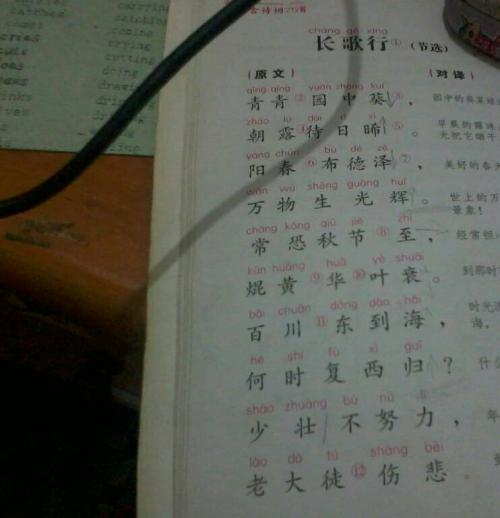 古诗词
cháng gē xíng
长歌行① (节选)
(原文) (对译)
qīng qīng yuán zhōng kuí
青青②园中葵③, 园中的葵菜
zhāo lù dài rì xī
朝露④待日晞⑤。 早晨的露珠
光把它晒干
yáng chūn bù dé zé
阳春⑥布德泽⑦, 美好的春天
wàn wù shēng guāng huī
万物生光辉。 世上的万
景象!
cháng kǒng qiū jié zhì
常恐秋节⑧至, 经常担
kūn huáng huā yè shuāi
焜黄⑨华⑩叶衰。 到那时
bǎi chuān dōng dào hǎi
百川⑪东到海, 时光
海,
hé shí fù xī guī
何时复西归? 什么
shào zhuàng bù nǔ lì
少壮不努力, 年
lǎo dà tú shāng bēi
老大徒⑫伤悲。
catches
carrying
catching
coming
trying
cutting
doing